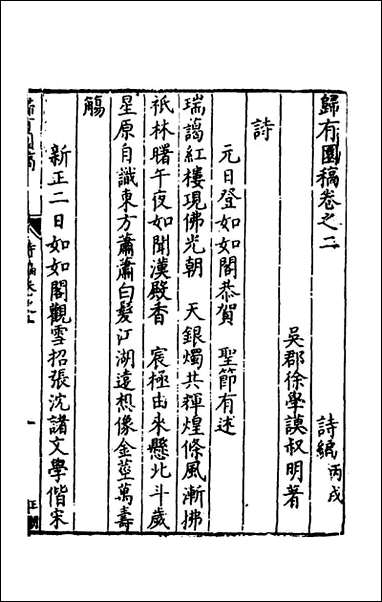 歸有園稿卷之二　詩編丙戌
吳郡徐學謨叔明著
詩
元日登如如閣恭賀　聖節有述
瑞靄紅樓現佛光朝　天銀燭共輝煌條風漸拂
祇林曙午夜如聞漢殿香　宸極由來懸北斗歲
星原自識東方蕭蕭白髮江湖遠想像金莖萬壽
觴
新正二日如如閣觀雪招張沈諸文學偕宋